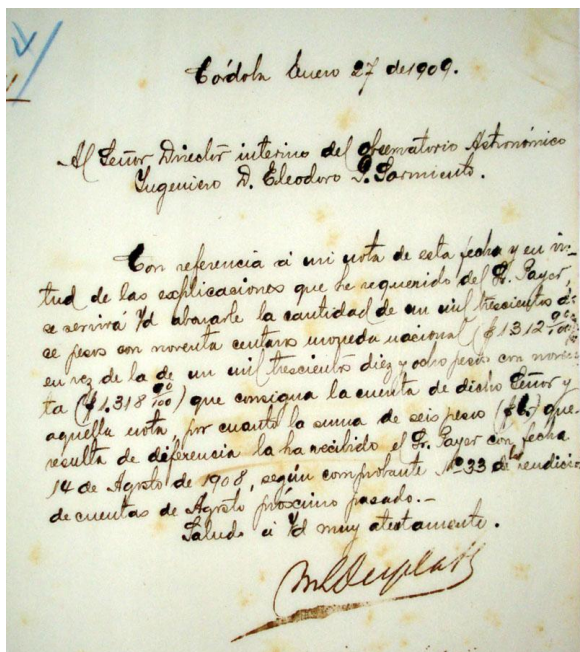 Córdoba Enero 27 de 1909.
Al Señor Director interino del Observatorio Astronómico
Ingeniero D. Eleodoro G. Sarmiento.
Con referencia á mi nota de esta fecha y en vir-
tud de las explicaciones que he requerido del Sr. Payer,
se servirá Vd abonarle la cantidad de un mil trescientos do-
ce pesos con noventa centavos moneda nacional ($1312 90/100)
en vez de la de un mil trescientos diez y ocho pesos con noven-
ta ($1.318 90/100) que consigna la cuenta de dicho Señor y
aquella nota, por cuanto la suma de seis pesos ($6) que
resulta de diferencia la ha recibido el Sr. Payer con fecha
14 de Agosto de 1908, según comprobante Nº 33 de la rendicion
de cuentas de Agosto próximo pasado.-
Saludo á Vd muy atestamente.